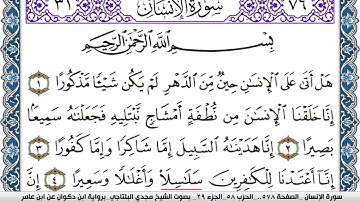 ٣١ سُورَةُ الْإِنسَانِ ٧٦
بِسْمِ اللَّهِ الرَّحْمَٰنِ الرَّحِيمِ
هَلْ أَتَىٰ عَلَى الْإِنسَانِ حِينٌ مِّنَ الدَّهْرِ لَمْ يَكُن شَيْئًا مَّذْكُورًا ١
إِنَّا خَلَقْنَا الْإِنسَانَ مِن نُّطْفَةٍ أَمْشَاجٍ نَّبْتَلِيهِ فَجَعَلْنَاهُ سَمِيعًا
بَصِيرًا ٢ إِنَّا هَدَيْنَاهُ السَّبِيلَ إِمَّا شَاكِرًا وَإِمَّا كَفُورًا ٣
إِنَّا أَعْتَدْنَا لِلْكَافِرِينَ سَلَاسِلَا۟ وَأَغْلَالًا وَسَعِيرًا ٤ إِنَّ
سورة الإنسان _ الصفحة ٥٧٨... الحزب ٥٨_الجزء ٢٩ _ بصوت الشيخ مجدي البلتاجي_ برواية ابن ذكوان عن ابن عامر